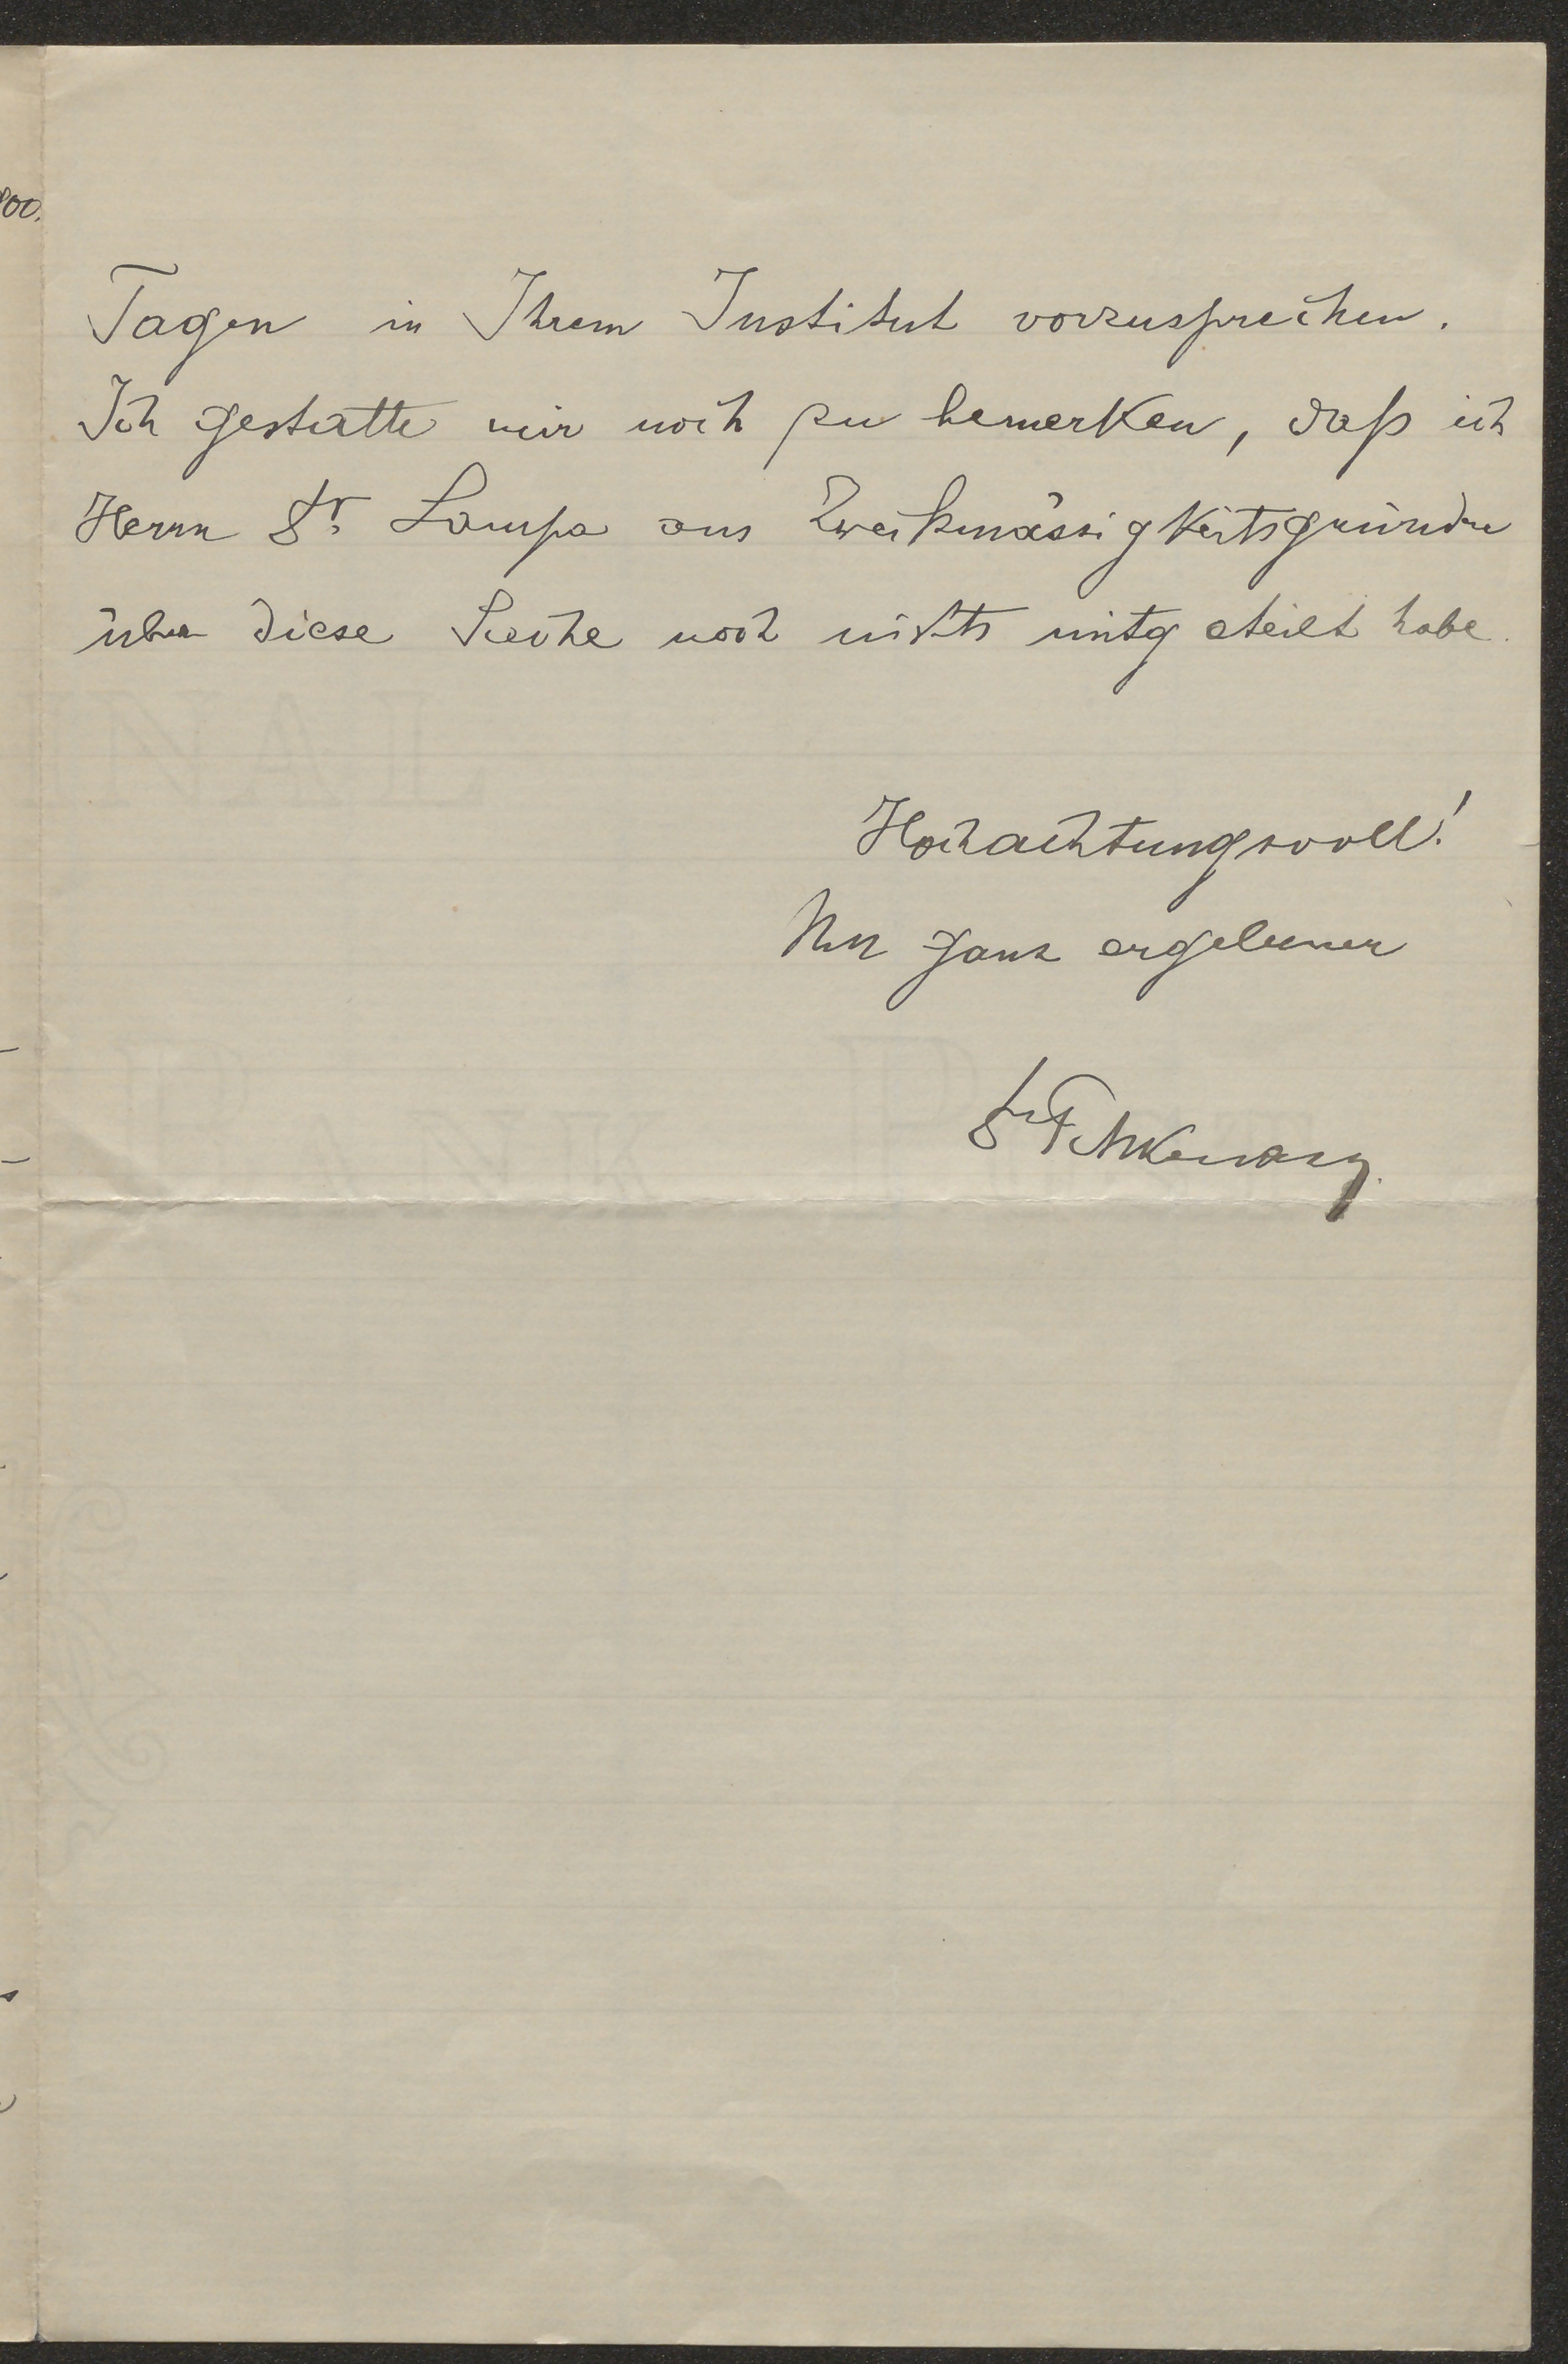 900.
Tagen in Ihrem Institut vorzusprechen.
Ich gestatte mir noch zu bemerken, daß ich
Herrn Dr. Lampa aus Zweckmässigkeitsgründen
über diese Sache noch nichts mitgeteilt habe.
Hochachtungsvoll!
Ihr ganz ergebener
Dr F.